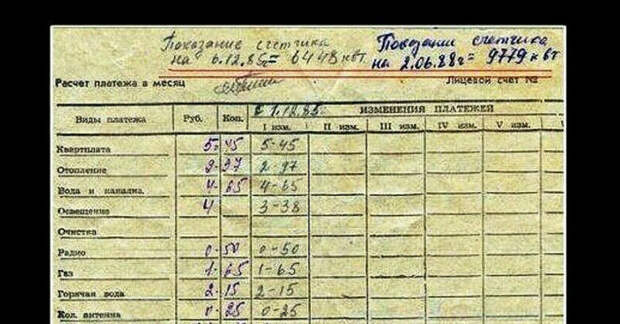 Показание счетчика Показании счетчика
на 6.12.85г= 6448 квт. на 2.06.88г= 9779 квт
Расчет платежа в месяц Лицевой счет №
с 1.12.85г. ИЗМЕНЕНИЯ ПЛАТЕЖЕЙ
Виды платежа Руб. Коп. I изм. II изм. III изм. IV изм. V изм.
Квартплата 5-45 5-45
Отопление 2-97 2-97
Вода и канализ. 4-65 4-65
Освещение 4 3-38
Очистка
Радио 0-50 0-50
Газ 1-65 1-65
Горячая вода 2-15 2-15
Кол. антенна 0-25 0-25